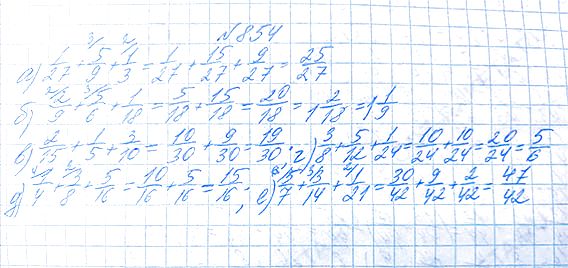 №854
а) 1/27 + 5/9 + 1/3 = 1/27 + 15/27 + 9/27 = 25/27
б) 2/9 + 5/6 + 1/18 = 5/18 + 15/18 = 20/18 = 1 2/18 = 1 1/9
в) 2/15 + 1/5 + 3/10 = 10/30 + 9/30 = 19/30. г) 3/8 + 5/12 + 1/24 = 10/24 + 10/24 = 20/24 = 5/6
д) 1/4 + 3/8 + 5/16 = 10/16 + 5/16 = 15/16; е) 5/7 + 3/14 + 1/21 = 30/42 + 9/42 + 2/42 = 47/42